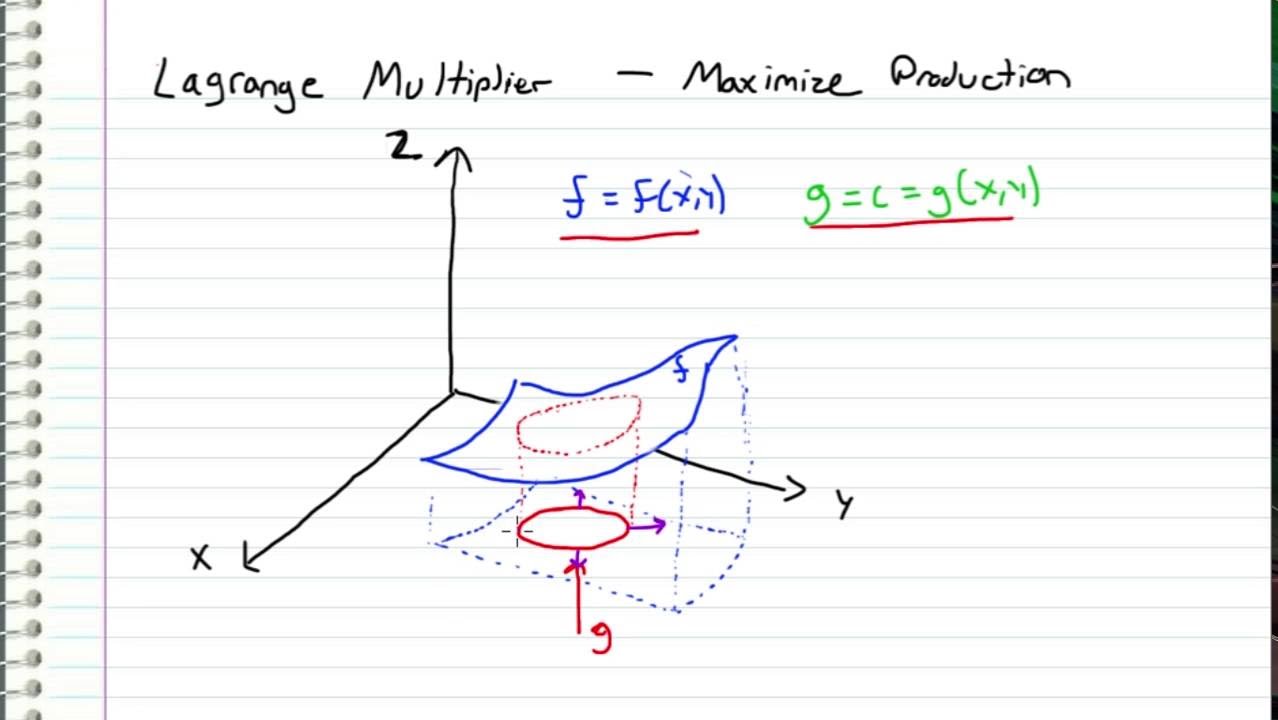 Lagrange Multiplier — Maximize Production
z
f = f(x,y) g = c = g(x,y)
f
y
x
g